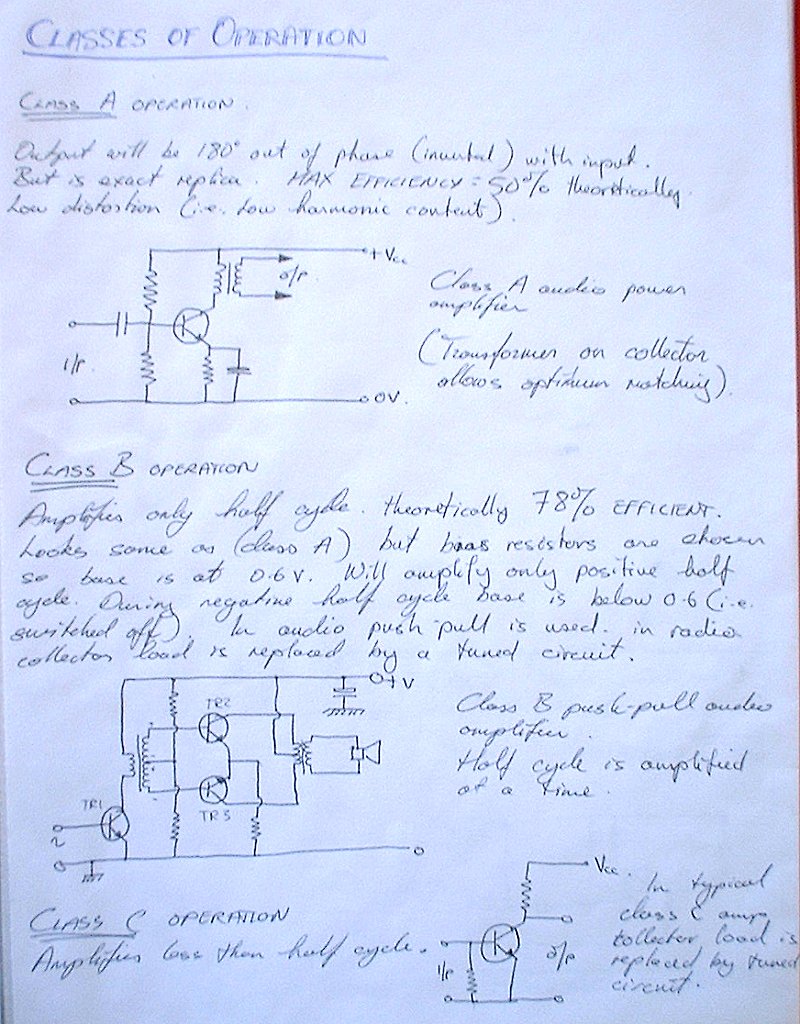 CLASSES OF OPERATION
CLASS A OPERATION.
Output will be 180° out of phase (inverted) with input.
But is exact replica. MAX EFFICIENCY = 50% theoretically.
Low distortion (i.e. low harmonic content).
+Vcc
o/p.
Class A audio power
amplifier
(Transformer on collector
allows optimum matching).
1/p.
0V.
CLASS B OPERATION
Amplifies only half cycle. theoretically 78% EFFICIENT.
Lookes same as (class A) but bias resistors are chosen
so base is at 0.6v. Will amplify only positive half
cycle. During negative half cycle base is below 0.6 (i.e.
switched off). In audio push-pull is used. in radio
collector load is replaced by a tuned circuit.
+V
TR2
Class B push-pull audio
amplifier.
Half cycle is amplified
at a time.
TR1
TR3
~
CLASS C OPERATION
Amplifies less than half cycle.
Vcc.
1/p
o/p
In typical
class C amps
collector load is
replaced by tuned
circuit.